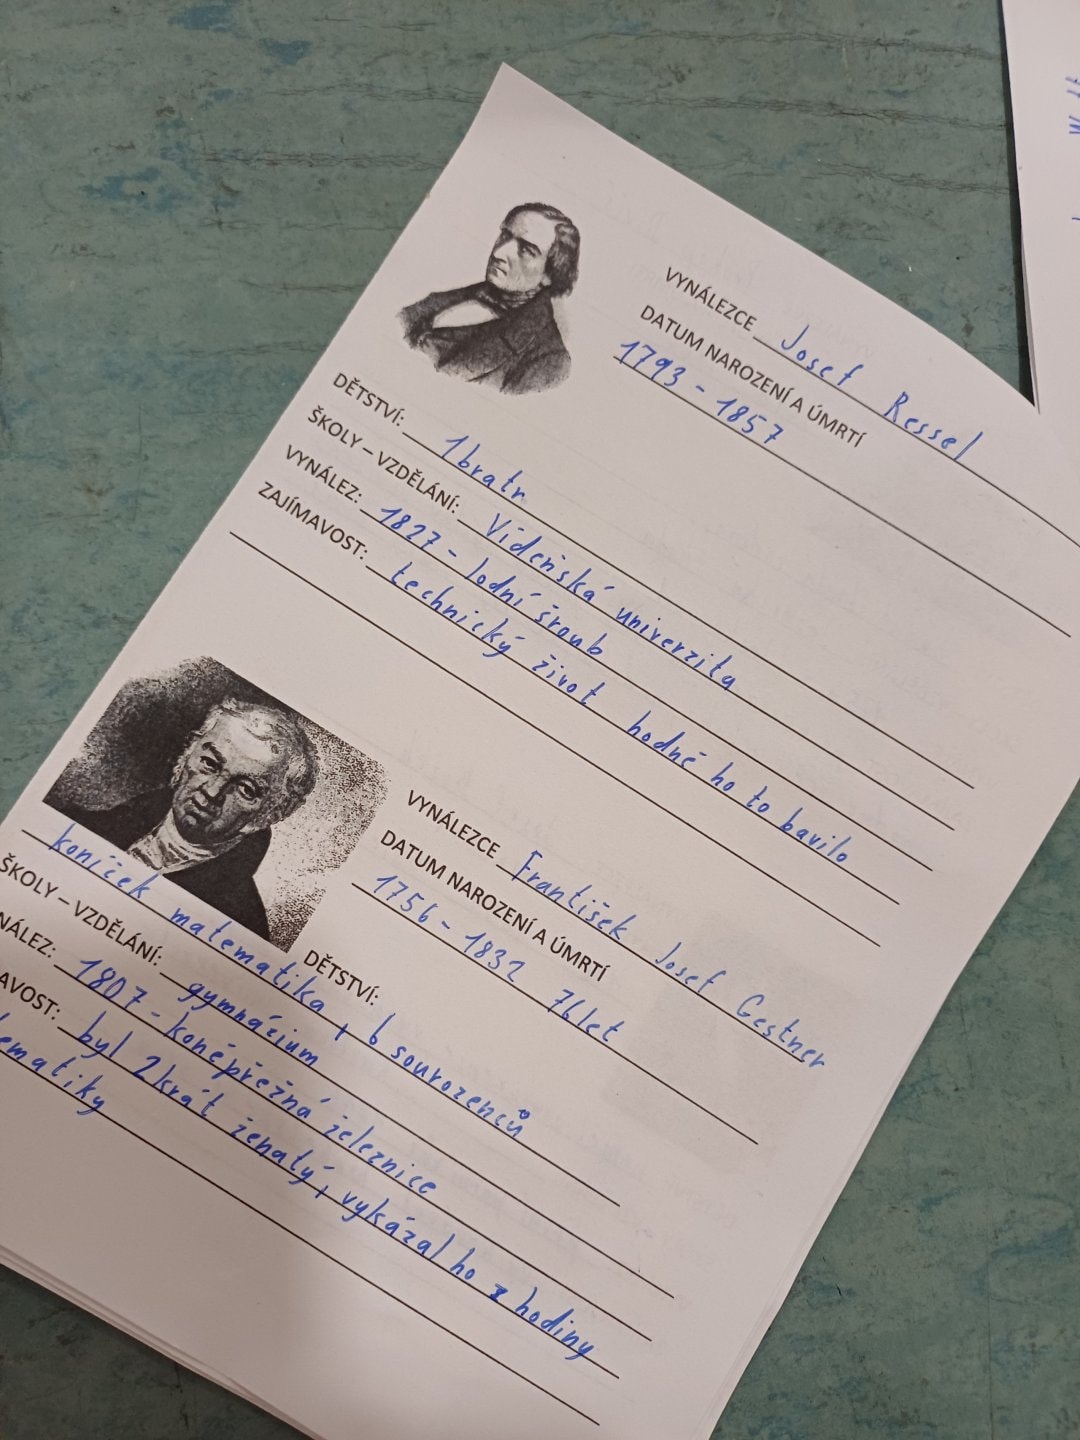 VYNÁLEZCE Josef Ressel
DATUM NAROZENÍ A ÚMRTÍ
1793 - 1857
DĚTSTVÍ: 1 bratr
ŠKOLY – VZDĚLÁNÍ: Vídeňská univerzita
VYNÁLEZ: 1827 - lodní šroub
ZAJÍMAVOST: technický život hodně ho to bavilo
VYNÁLEZCE František Josef Gestner
DATUM NAROZENÍ A ÚMRTÍ
1756 - 1832 76 let
DĚTSTVÍ:
koníček matematika, 6 sourozenců
ŠKOLY – VZDĚLÁNÍ: gymnázium
NÁLEZ: 1807 - koněpřežná železnice
AVOST: byl 2krát ženatý, vykázal ho z hodiny
ematiky